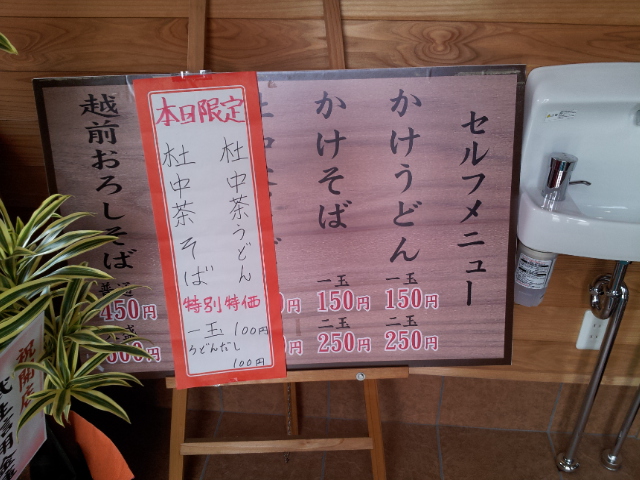 セルフメニュー
かけうどん
一玉
150円
二玉
250円
かけそば
一玉
150円
二玉
250円
本日限定
杜中茶うどん
杜中茶そば
特別特価
一玉 100円
うどんだし
100円
越前おろしそば
450円
祝開店